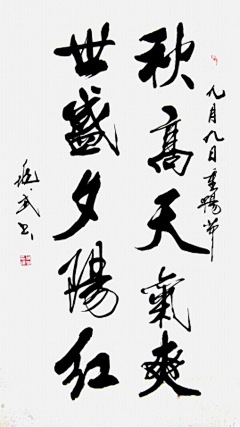 九月九日重陽節
秋高天氣爽
世盛夕陽紅